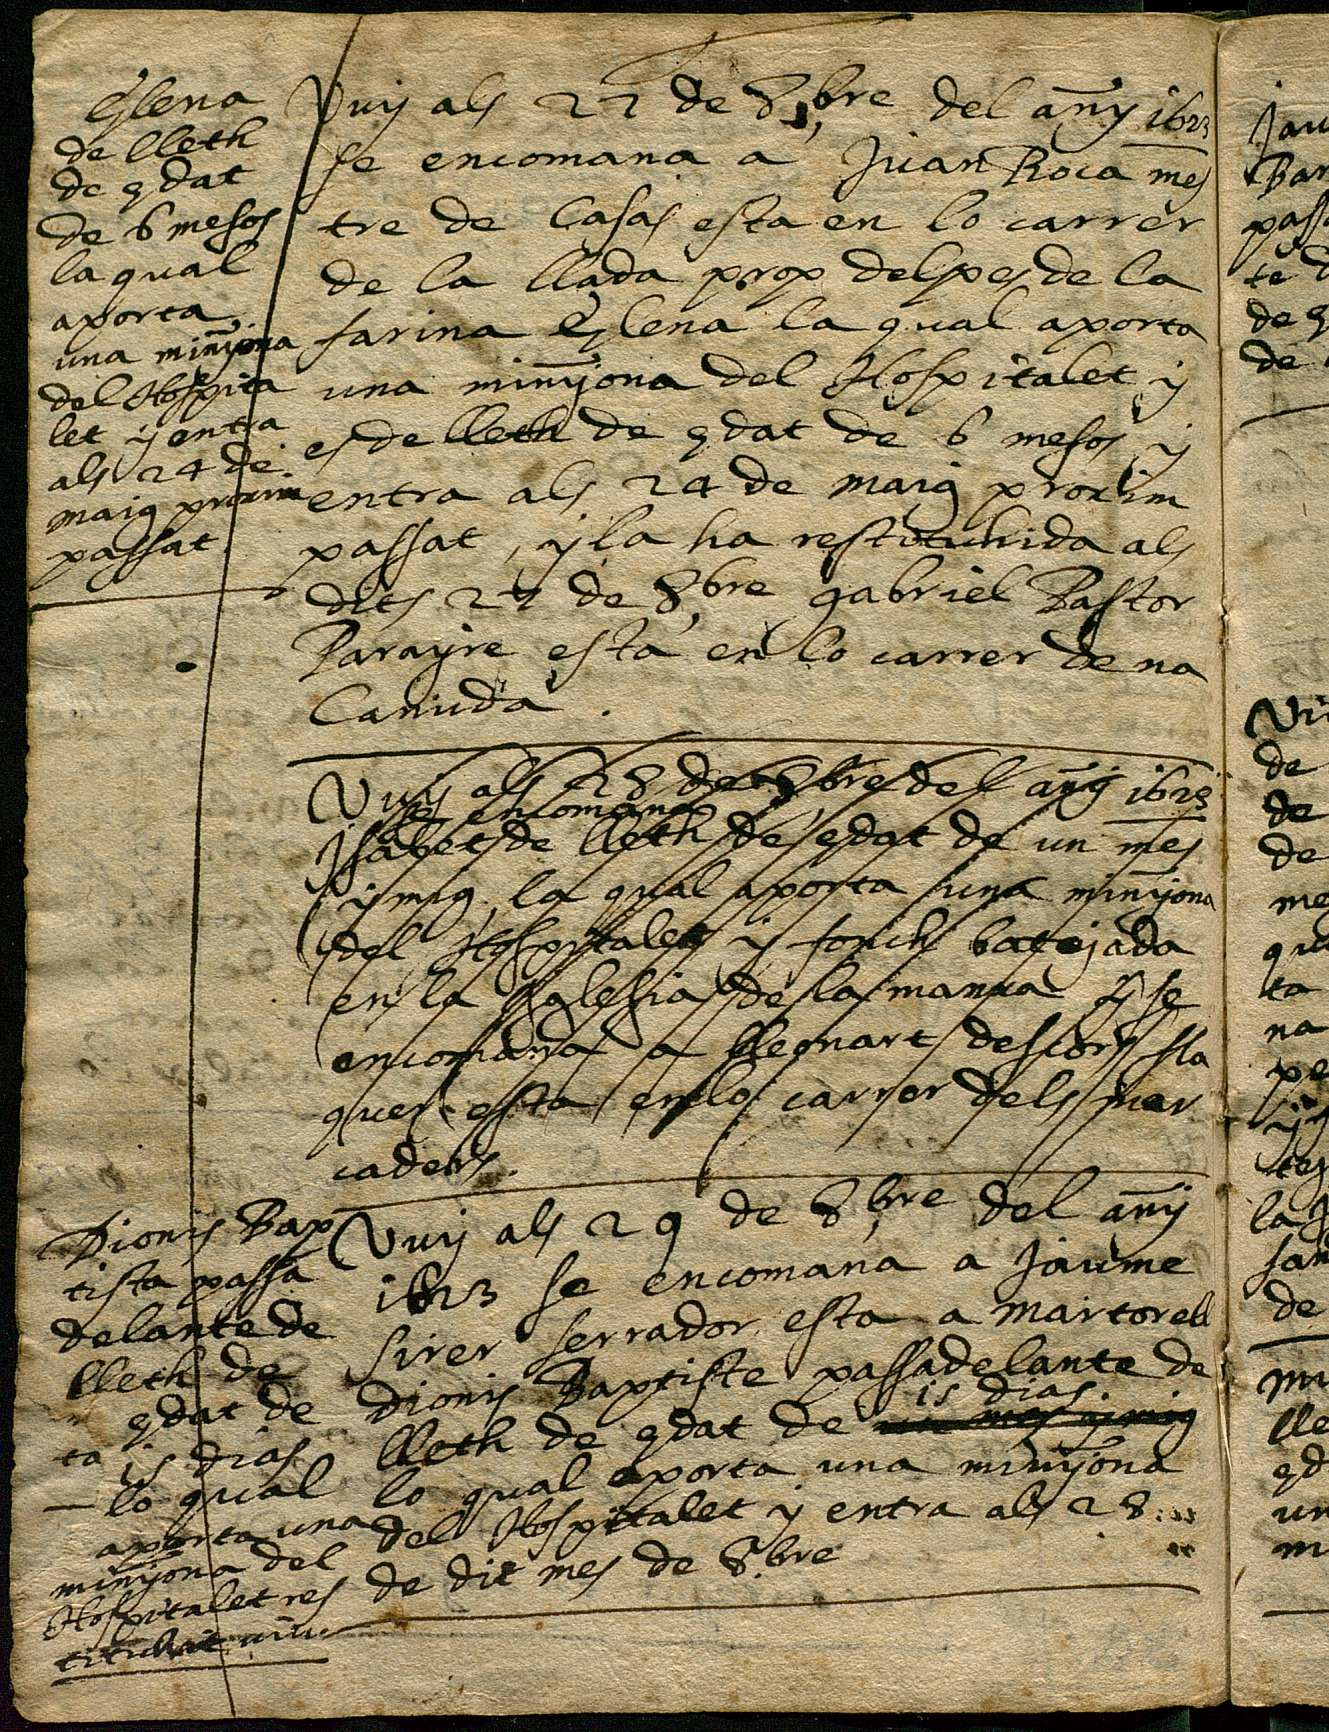 Elena
de lleth
de edat
de 6 mesos
la qual
aporta
una minyona
del Hospita
let y entra
als 24 de
maig proxim
passat
Vuy als 27 de 8bre del añy 1623
se encomana a Juan Roca mes
tre de Casas esta en lo carrer
de la llada prop del pes de la
farina Elena la qual aporta
una minyona del Hospitalet y
es de lleth de edat de 6 mesos y
entra als 24 de maig proxim
passat, y la ha restituhida als
dits 27 de 8bre gabriel Pastor
Parayre esta en lo carrer de na
Canuda.
Vuy als 28 de 8bre del añy 1623
se encomana
Isabet de lleth de edat de un mes
y mig la qual aporta una minyona
del Hospitalet y fonch batejada
en la Iglesia de la manra y se
encomana a lleonart descors sta
quer esta en lo carrer dels mer
caders.
Dionis Bap
tista passa
delante de
lleth de
edat de
15 dias
lo qual
aporta una
minyona del
Hospitalet res
tituhit viu
Vuy als 29 de 8bre del añy
1623 se encomana a Jaume
Sirer serrador esta a martorell
Dionis Baptiste passadelante de
15 dias.
lleth de edat de un mes y mig
lo qual aporta una minyona
del Hospitalet y entra als 28
de dit mes de 8bre